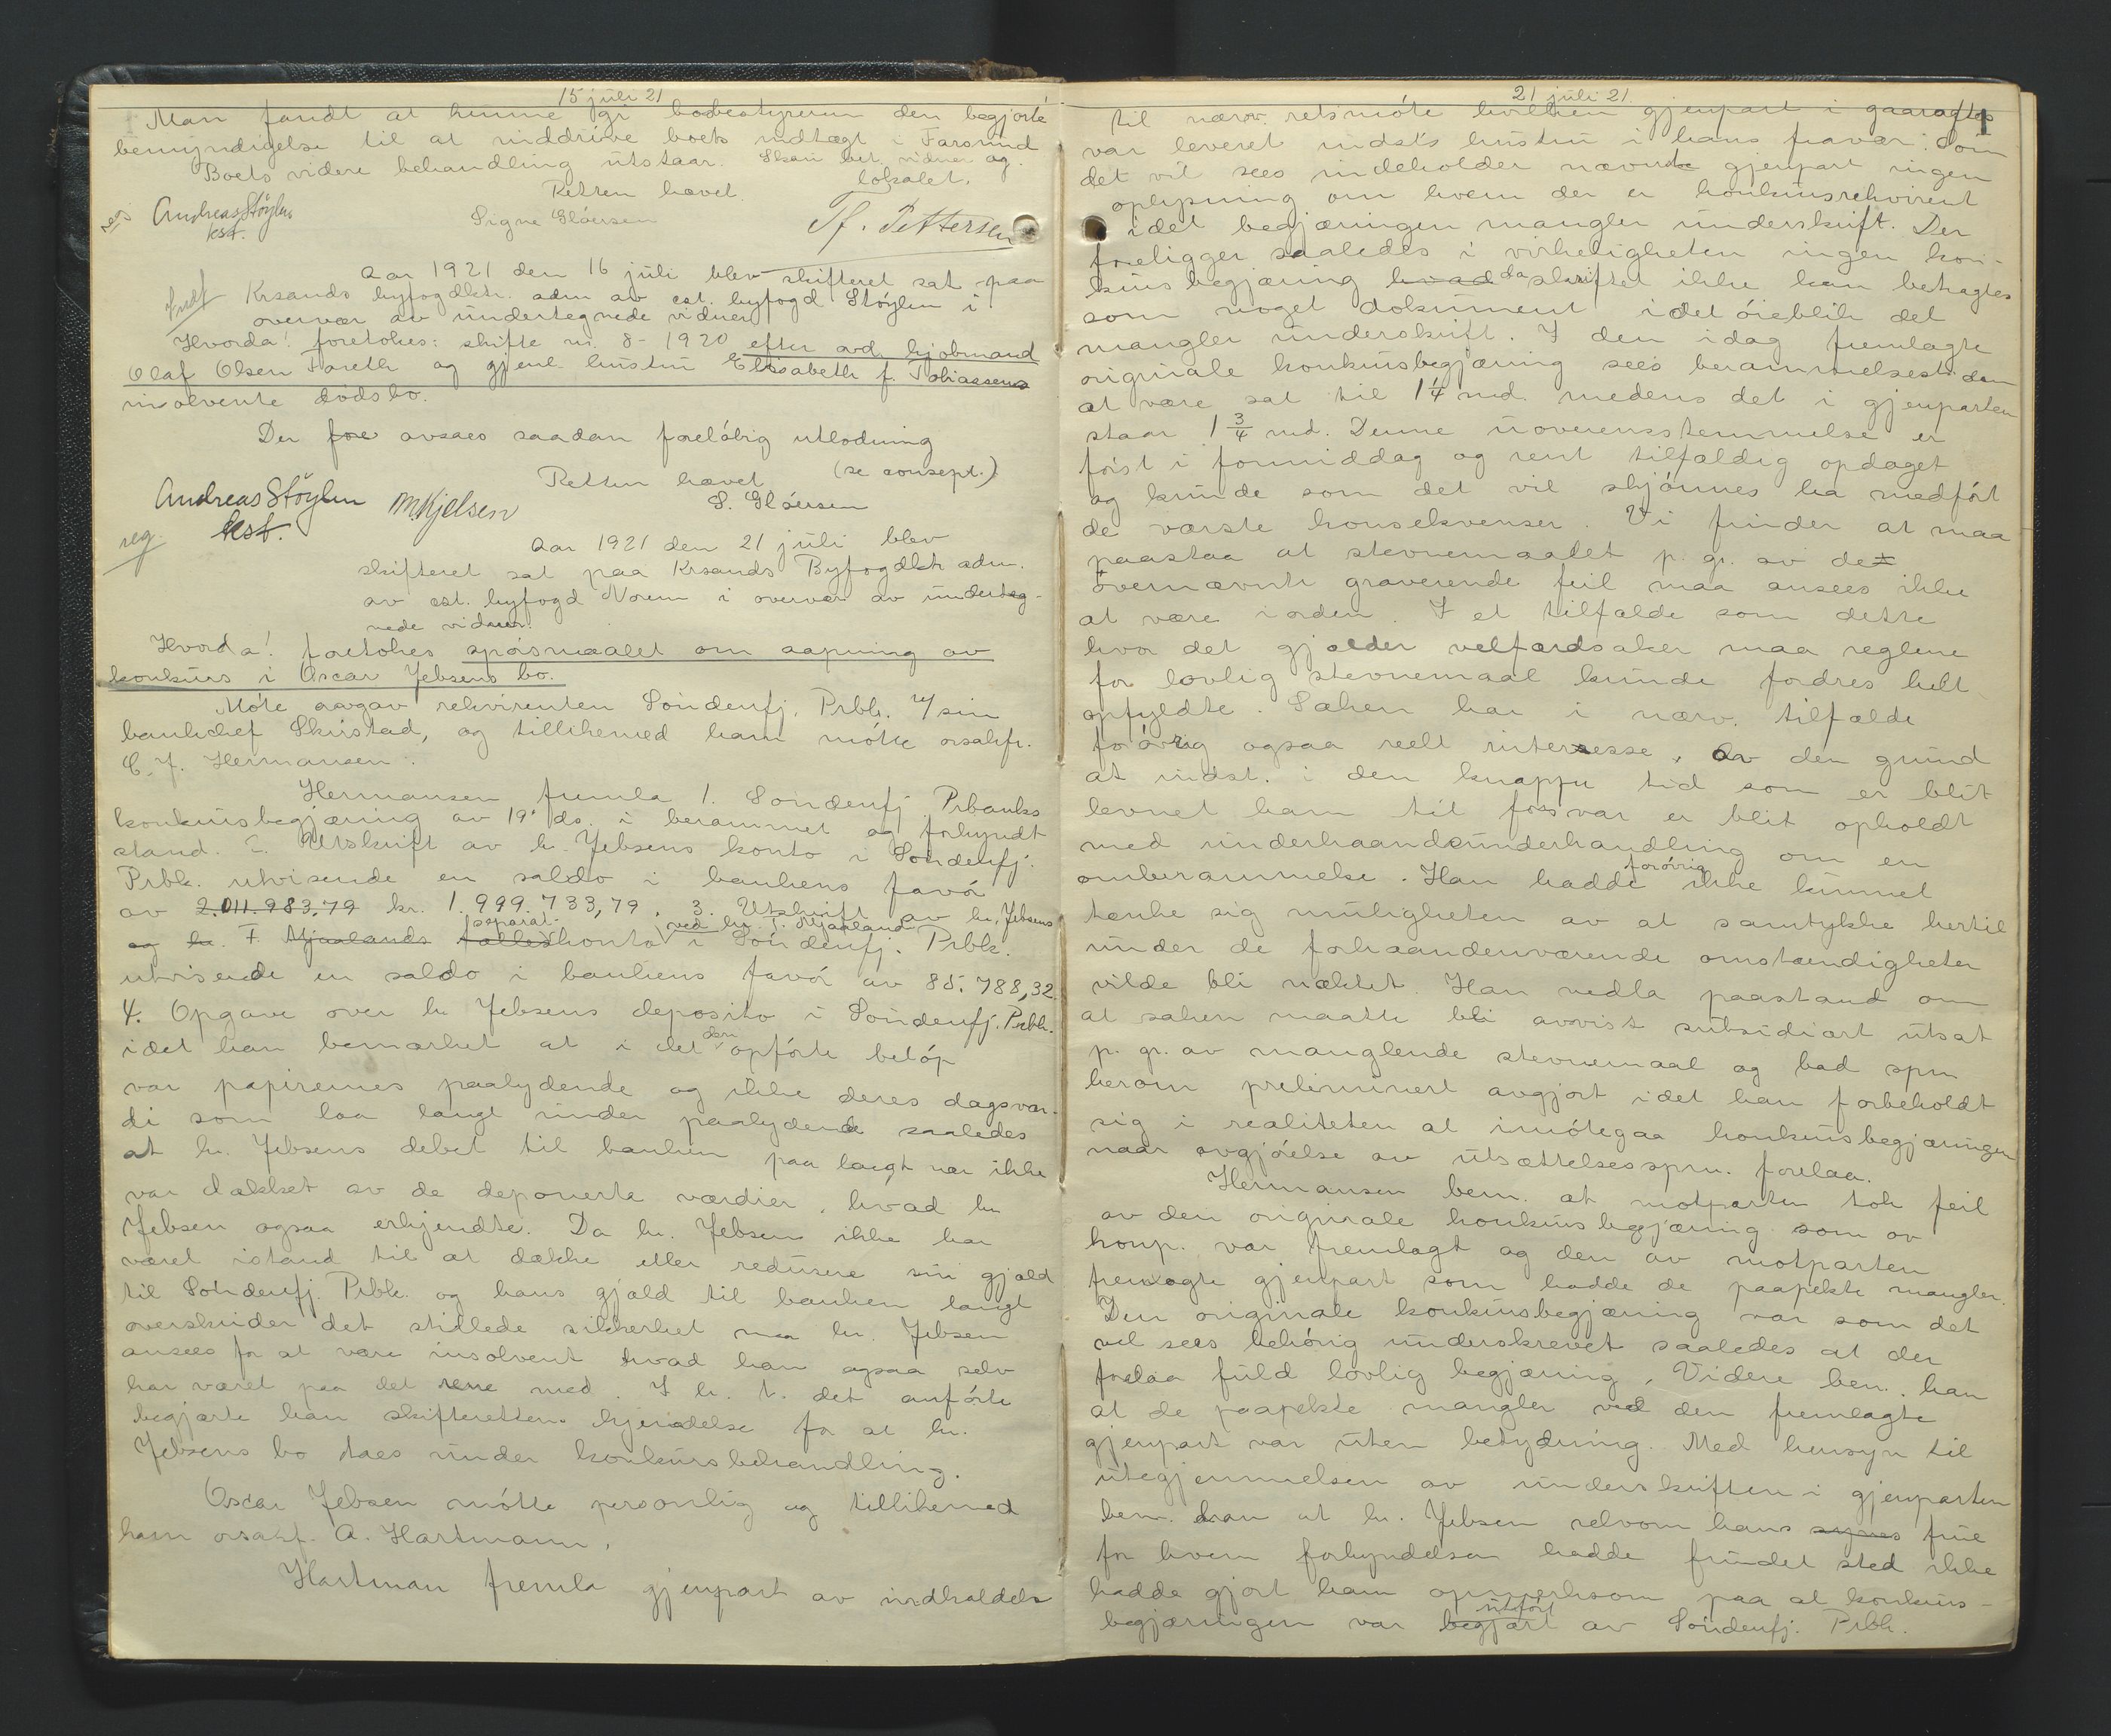 15 juli 21
Man fandt at kunne gi bobestyreren den begjærte
bemyndigelse til at inddrive boets indtægt i Farsund
Boets videre behandling utstaar. Skan bet. vidner og
lokalet.
Retten hævet.
Andreas Støylen
kst.
Signe Gløersen
Tf. Pettersen
Aar 1921 den 16 juli blev skifteret sat paa
Krsands byfogdktr. adm av cst. byfogd Støylen i
overvær av undertegnede vidner
Hvorda! foretokes: skifte nr. 8 - 1920 efter avd. kjøbmand
Olaf Olsen Fareth og gjenl. hustru Elisabeth f. Tobiassens
insolvente dødsbo.
Der fore avsaes saadan foreløbig utlodning
(se consept.)
Retten hævet
Andreas Støylen
kst.
M. Kjelsen
S. Gløersen
reg.
Aar 1921 den 21 juli blev
skifteret sat paa Krsands Byfogdktr adm.
av cst. byfogd Norem i overvær av underteg-
nede vidner.
Hvorda! foretokes spørsmaalet om aapning av
konkurs i Oscar Jebsens bo.
Møte avgav rekvirenten Søndenfj. Prbk. v/ sin
bankchef Skustad, og tillikemed ham møtte orsakfr.
C. J. Hermansen.
Hermansen fremla 1. Søndenfj. Prbanks
konkursbegjæring av 19' ds. i berammet og forkyndt
stand. 2. Utskrift av hr. Jebsens konto i Søndenfj.
Prbk. utvisende en saldo i bankens favør
av 2.011.983,79 kr. 1.999.733,79. 3. Utskrift av hr. Jebsens
separat- ved hr. T. Mjaaland
og hr. T. Mjaalands fælles konto i Søndenfj. Prbk.
utvisende en saldo i bankens favør av 85.788,32.
4. Opgave over hr Jebsens deposito i Søndenfj. Prbk.
idet han bemærket at i det den opførte beløp
var papirernes paalydende og ikke deres dagsvær-
di som laa langt under paalydende saaledes
at hr. Jebsens debet til banken paa langt nær ikke
var dækket av de deponerte værdier, hvad hr
Jebsen ogsaa erkjendte. Da hr. Jebsen ikke har
været istand til at dække eller redusere sin gjæld
til Søndenfj. Prbk. og hans gjæld til banken langt
overskrider det stillede sikkerhet maa hr. Jebsen
ansees for at være insolvent hvad han ogsaa selv
har været paa det rene med. I h. t. det anførte
begjærte han skifterettens kjendelse for at hr.
Jebsens bo taes under konkursbehandling.
Oscar Jebsen møtte personlig og tillikemed
ham orsakf. A. Hartmann.
Hartman fremla gjenpart av indkaldels
21 juli 21.
til nærv. retsmøte hvilken gjenpart i gaaraftes
var leveret indst's hustru i hans fravær. Som
det vil sees indeholder nævnte gjenpart ingen
oplysning om hvem der er konkursrekvirent
idet begjæringen mangler underskrift. Der
foreligger saaledes i virkeligheten ingen kon-
kursbegjæring hvad da skriftet ikke kan betragtes
som noget dokument idet øieblik det
mangler underskrift. I den idag fremlagte
originale konkursbegjæring sees berammelsestiden
at være sat til 1 1/4 md. medens det i gjenparten
staar 1 3/4 md. Denne uoverensstemmelse er
først i formiddag og rent tilfældig opdaget
og kunde som det vil skjønnes ha medført
de værste konsekvenser. Vi finder at maa
paastaa at stevnemaalet p. gr. av det
overnævnte graverende feil maa ansees ikke
at være iorden. I et tilfælde som dette
hvor det gjælder velfærdsaker maa reglene
for lovlig stevnemaal kunde fordres helt
opfyldte. Saken har i nærv. tilfælde
forøvrig ogsaa reell interesse, av den grund
at indst. i den knappe tid som er blit
levnet ham til forsvar er blit opholdt
med underhaandsunderhandling om en
omberammelse. Han hadde forøvrig ikke kunnet
tænke sig muligheten av at samtykke hertil
under de forhaandenværende omstændigheter
vilde bli nektet. Han nedla paastand om
at saken maatte bli avvist subsidiært utsat
p. gr. av manglende stevnemaal og bad spm
herom preliminert avgjort idet han forbeholdt
sig i realiteten at imøtegaa konkursbegjæringen
naar avgjørelse av utsættelsesspm. forelaa.
Hermansen bem. at motparten tok feil
av den originale konkursbegjæring som av
komp. var fremlagt og den av motparten
fremlagte gjenpart som hadde de paapekte mangler.
Den originale konkursbegjæring var som det
vil sees behørig underskrevet saaledes at der
forelaa fuld lovlig begjæring. Videre bem. han
at de paapekte mangler ved den fremlagte
gjenpart var uten betydning. Med hensyn til
utegjemmelsen av underskriften i gjenparten
bem. han at hr. Jebsen selvom hans synes frue
for hvem forkyndelsen hadde fundet sted ikke
hadde gjort ham opmerksom paa at konkurs-
begjæringen var begjært utført av Søndenfj. Prbk.